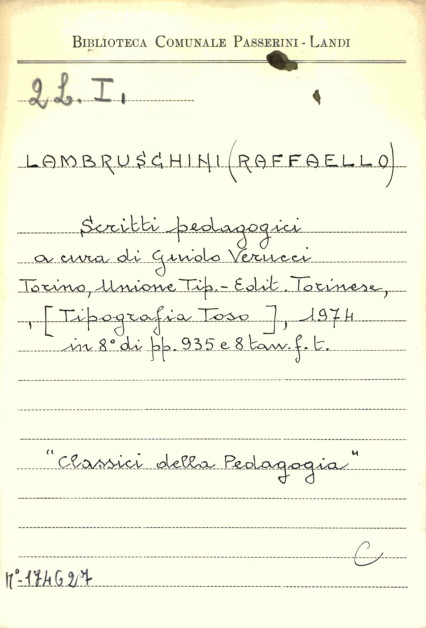 BIBLIOTECA COMUNALE PASSERINI - LANDI
2 L. I.
LAMBRUSCHINI (RAFFAELLO)
Scritti pedagogici
a cura di Guido Verucci
Torino, Unione Tip.- Edit. Torinese,
, [Tipografia Toso ], 1974
in 8° di pp. 935 e 8 tav. f. t.
"Classici della Pedagogia"
C
N°-174627